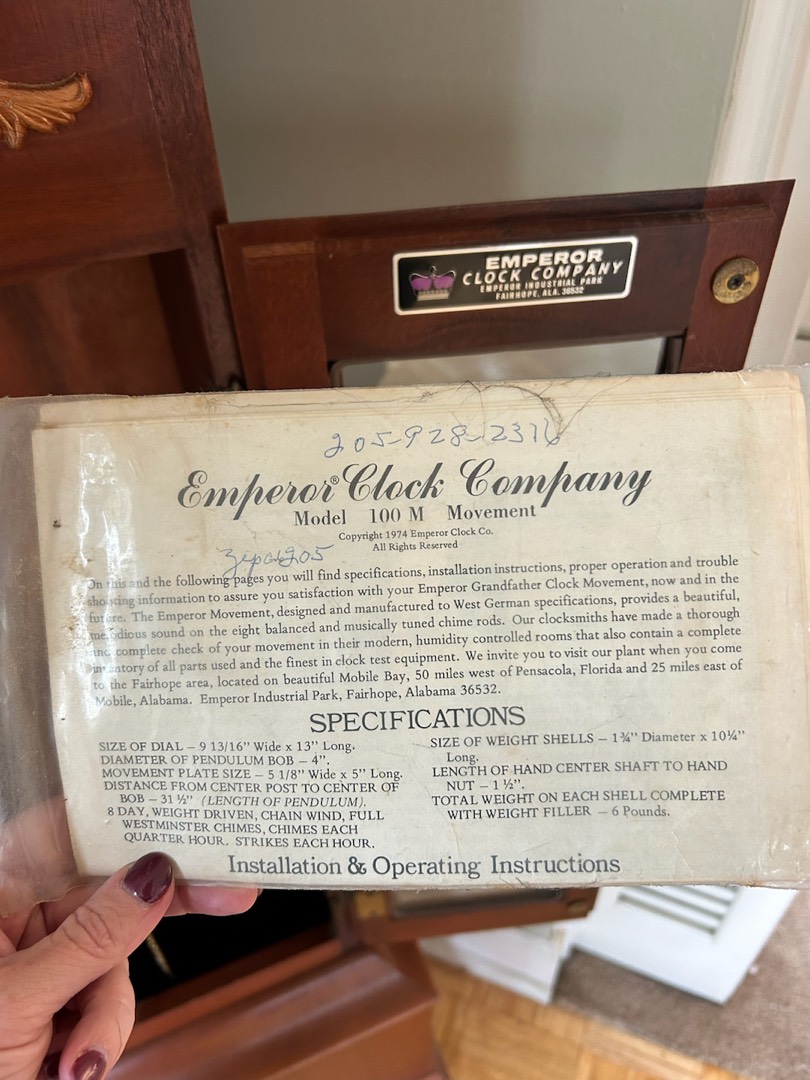 EMPEROR
CLOCK COMPANY
EMPEROR INDUSTRIAL PARK
FAIRHOPE, ALA. 36532
205-928-2316
Emperor® Clock Company
Model 100 M Movement
Copyright 1974 Emperor Clock Co.
All Rights Reserved
205
On this and the following pages you will find specifications, installation instructions, proper operation and trouble
shooting information to assure you satisfaction with your Emperor Grandfather Clock Movement, now and in the
future. The Emperor Movement, designed and manufactured to West German specifications, provides a beautiful,
melodious sound on the eight balanced and musically tuned chime rods. Our clocksmiths have made a thorough
and complete check of your movement in their modern, humidity controlled rooms that also contain a complete
inventory of all parts used and the finest in clock test equipment. We invite you to visit our plant when you come
to the Fairhope area, located on beautiful Mobile Bay, 50 miles west of Pensacola, Florida and 25 miles east of
Mobile, Alabama. Emperor Industrial Park, Fairhope, Alabama 36532.
SPECIFICATIONS
SIZE OF DIAL – 9 13/16" Wide x 13" Long.
DIAMETER OF PENDULUM BOB – 4".
MOVEMENT PLATE SIZE – 5 1/8" Wide x 5" Long.
DISTANCE FROM CENTER POST TO CENTER OF
BOB – 31 ½" (LENGTH OF PENDULUM).
8 DAY, WEIGHT DRIVEN, CHAIN WIND, FULL
WESTMINSTER CHIMES, CHIMES EACH
QUARTER HOUR. STRIKES EACH HOUR.
SIZE OF WEIGHT SHELLS – 1¾" Diameter x 10¼"
Long.
LENGTH OF HAND CENTER SHAFT TO HAND
NUT – 1 ½".
TOTAL WEIGHT ON EACH SHELL COMPLETE
WITH WEIGHT FILLER – 6 Pounds.
Installation & Operating Instructions